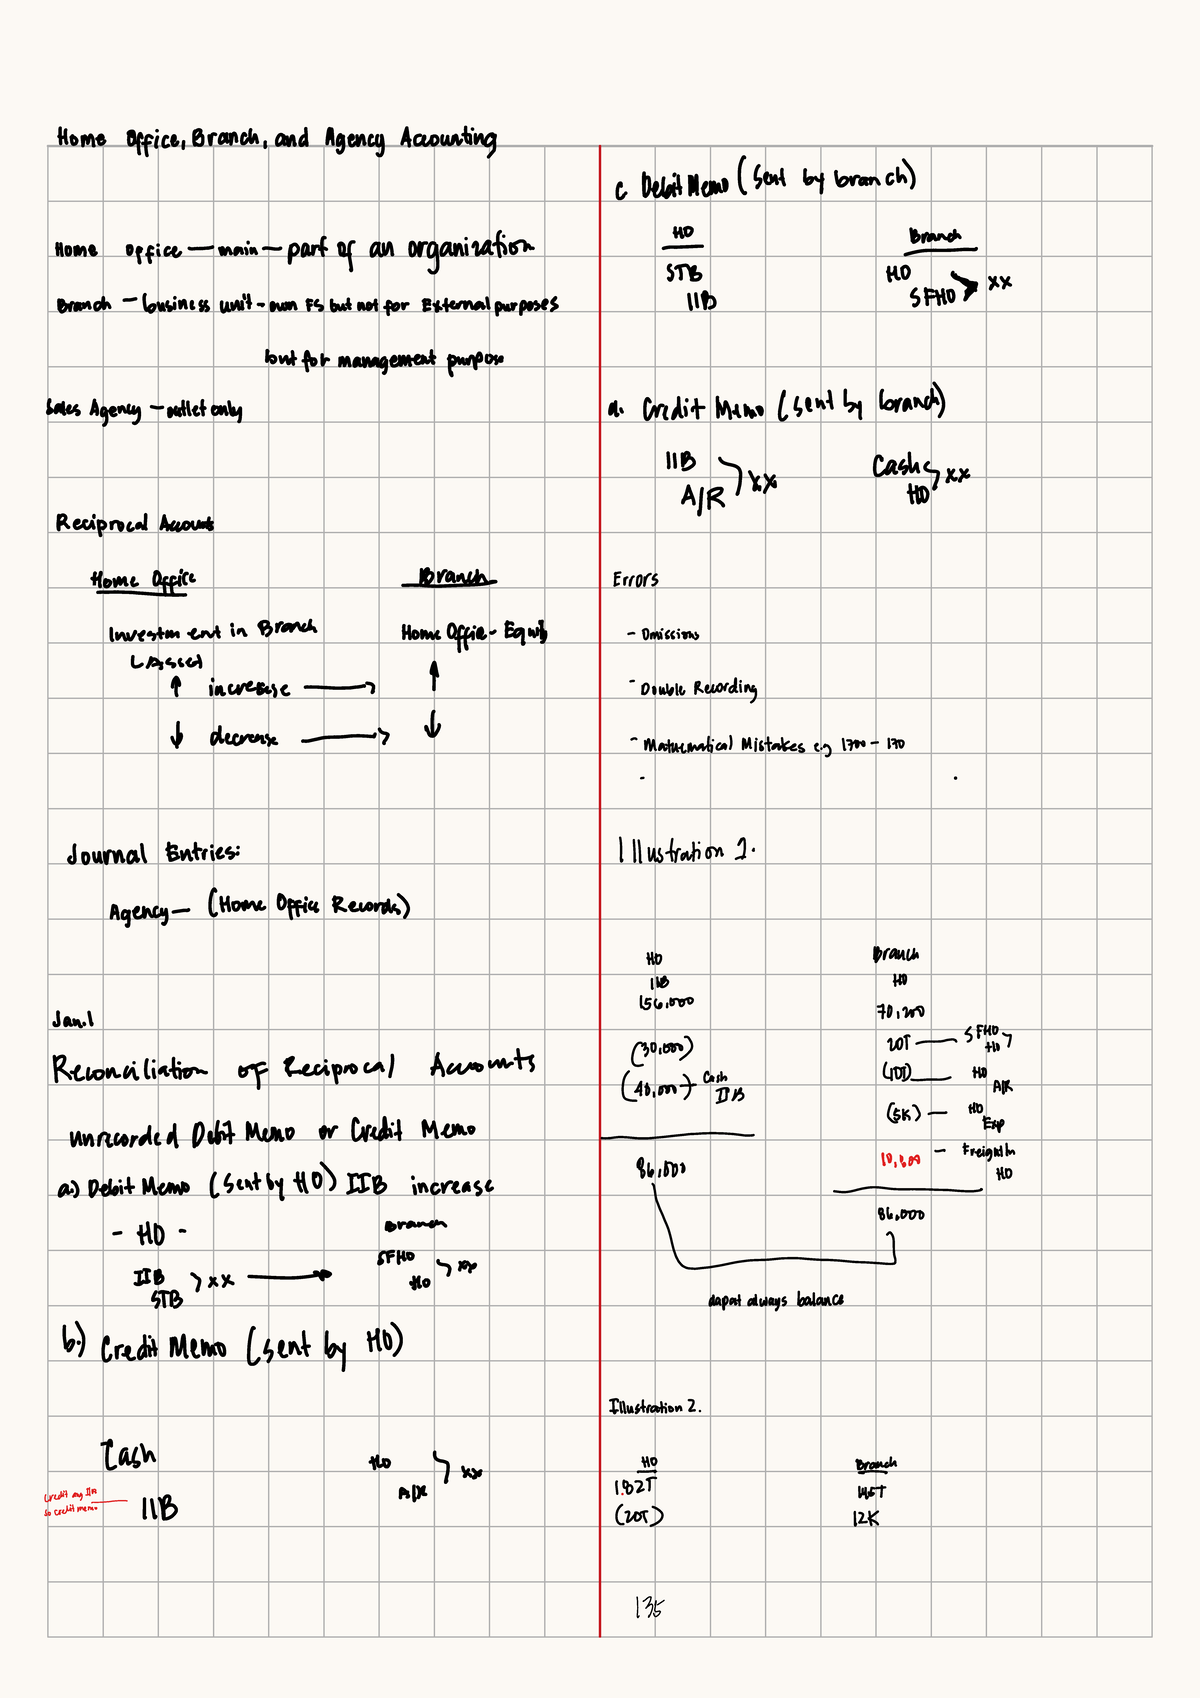 Home Office, Branch, and Agency Accounting
Home Office — main — part of an organization
Branch — business unit - own FS but not for External purposes
but for management purpose
Sales Agency — outlet only
Reciprocal Account
Home Office Branch
Investment in Branch Home Office - Equity
Asset
↑ increase → ↑
↓ decrease → ↓
Journal Entries:
Agency — (Home Office Records)
Jan. 1
Reconciliation of Reciprocal Accounts
unrecorded Debit Memo or Credit Memo
a.) Debit Memo (sent by HO) IIB increase
- HO - Branch
IIB SFHO
> xx → > xx
STB HO
b.) Credit Memo (sent by HO)
Cash HO
> xx
IIB A/R
Credit ang IIB
so credit memo
c Debit Memo (sent by branch)
HO Branch
STB HO
IIB SFHO > xx
d. Credit Memo (sent by branch)
IIB Cash
> xx > xx
A/R HO
Errors
- Omissions
- Double Recording
- Mathematical Mistakes e.g 1700 - 170
-
Illustration 1.
HO Branch
IIB HO
156,000 70,200
(30,000) 20T — SFHO
HO
(40,000) — Cash
IIB
HO
A/R
(5K) — HO
Exp
10,800 — Freight In
HO
86,000 86,000
dapat always balance
Illustration 2.
HO Branch
1.82T
(20T) 12K
135